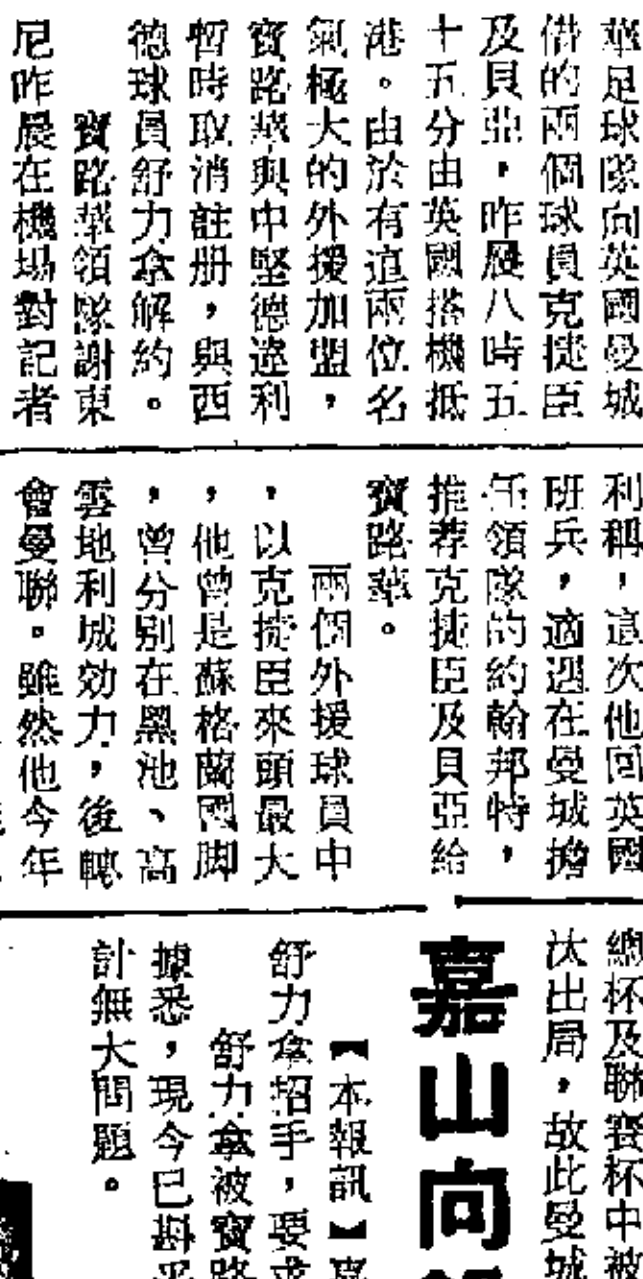 華足球隊向英國曼城
借的兩個球員克捷臣
及貝亞，昨晨八時五
十五分由英國搭機抵
港。由於有這兩位名
氣極大的外援加盟，
寳路華與中堅德遜利
暫時取消註册，與西
德球員舒力拿解約。
寳路華領隊謝東
尼昨晨在機場對記者
利稱，這次他回英國
班兵，適遇在曼城擔
任領隊的約翰邦特，
推荐克捷臣及貝亞給
寳路華。
兩個外援球員中
，以克捷臣來頭最大
，他曾是蘇格蘭國脚
，曾分別在黑池、高
雲地利城効力，後轉
會曼聯。雖然他今年
總杯及聯賽杯中被
汰出局，故此曼城
嘉山向
【本報訊】嘉
舒力拿招手，要求
舒力拿被寳路
據悉，現今已斟
計無大問題。